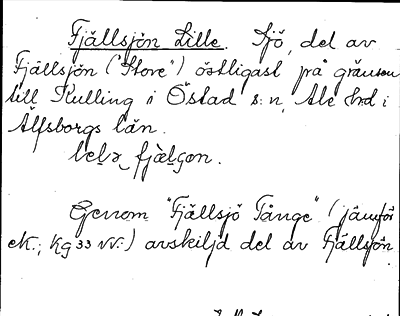 Fjällsjön Lille. Sjö, del av
Fjällsjön ("Store") östligast på gränsen
till Kulling i Östad s:n, Ale hrd i
Älfsborgs län.
Genom "Fjällsjö Tånge" (jämför
ek.; kg 33 NV:) avskiljd del av Fjällsjön